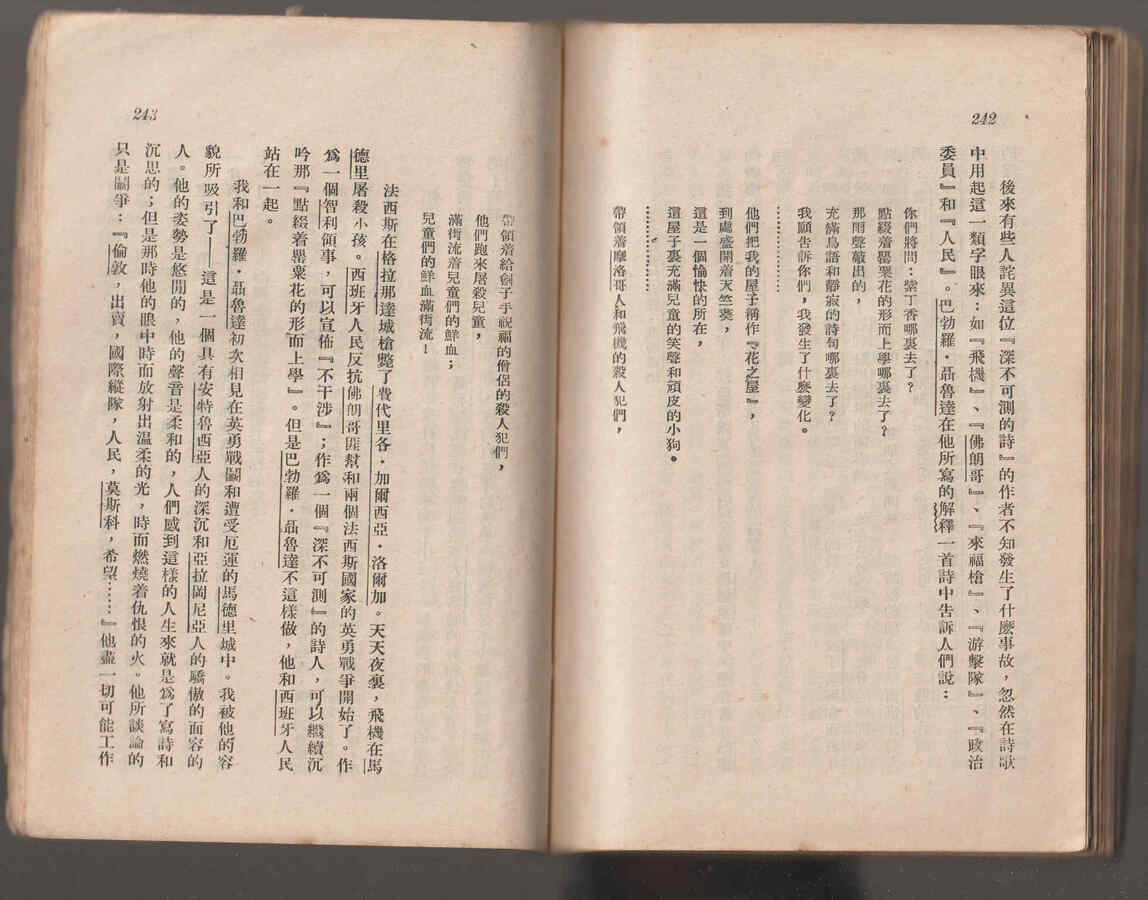 242
後來有些人詫異這位『深不可測的詩』的作者不知發生了什麼事故，忽然在詩歌
中用起這一類字眼來：如『飛機』、『佛朗哥』、『來福槍』、『游擊隊』、『政治
委員』和『人民』。巴勃羅·聶魯達在他所寫的解釋一首詩中告訴人們說：
你們將問：紫丁香哪裏去了？
點綴着罌粟花的形而上學哪裏去了？
那雨聲敲出的，
充滿鳥語和靜寂的詩句哪裏去了？
我願告訴你們，我發生了什麼變化。
…………………
他們把我的屋子稱作『花之屋』，
到處盛開着天竺葵，
這是一個愉快的所在，
這屋子裏充滿兒童的笑聲和頑皮的小狗。
…………………
帶領着摩洛哥人和飛機的殺人犯們，
243
帶領着給劊子手祝福的僧侶的殺人犯們，
他們跑來屠殺兒童，
滿街流着兒童們的鮮血；
兒童們的鮮血滿街流！
法西斯在格拉那達城槍斃了費代里各·加爾西亞·洛爾加。天天夜裏，飛機在馬
德里屠殺小孩。西班牙人民反抗佛朗哥匪幫和兩個法西斯國家的英勇戰爭開始了。作
爲一個智利領事，可以宣佈『不干涉』；作爲一個『深不可測』的詩人，可以繼續沉
吟那『點綴着罌粟花的形而上學』。但是巴勃羅·聶魯達不這樣做，他和西班牙人民
站在一起。
我和巴勃羅·聶魯達初次相見在英勇戰鬭和遭受厄運的馬德里城中。我被他的容
貌所吸引了——這是一個具有安特魯西亞人的深沉和亞拉岡尼亞人的驕傲的面容的
人。他的姿勢是悠閒的，他的聲音是柔和的，人們感到這樣的人生來就是爲了寫詩和
沉思的；但是那時他的眼中時而放射出温柔的光，時而燃燒着仇恨的火。他所談論的
只是鬭爭：『倫敦，出賣，國際縱隊，人民，莫斯科，希望……』他盡一切可能工作